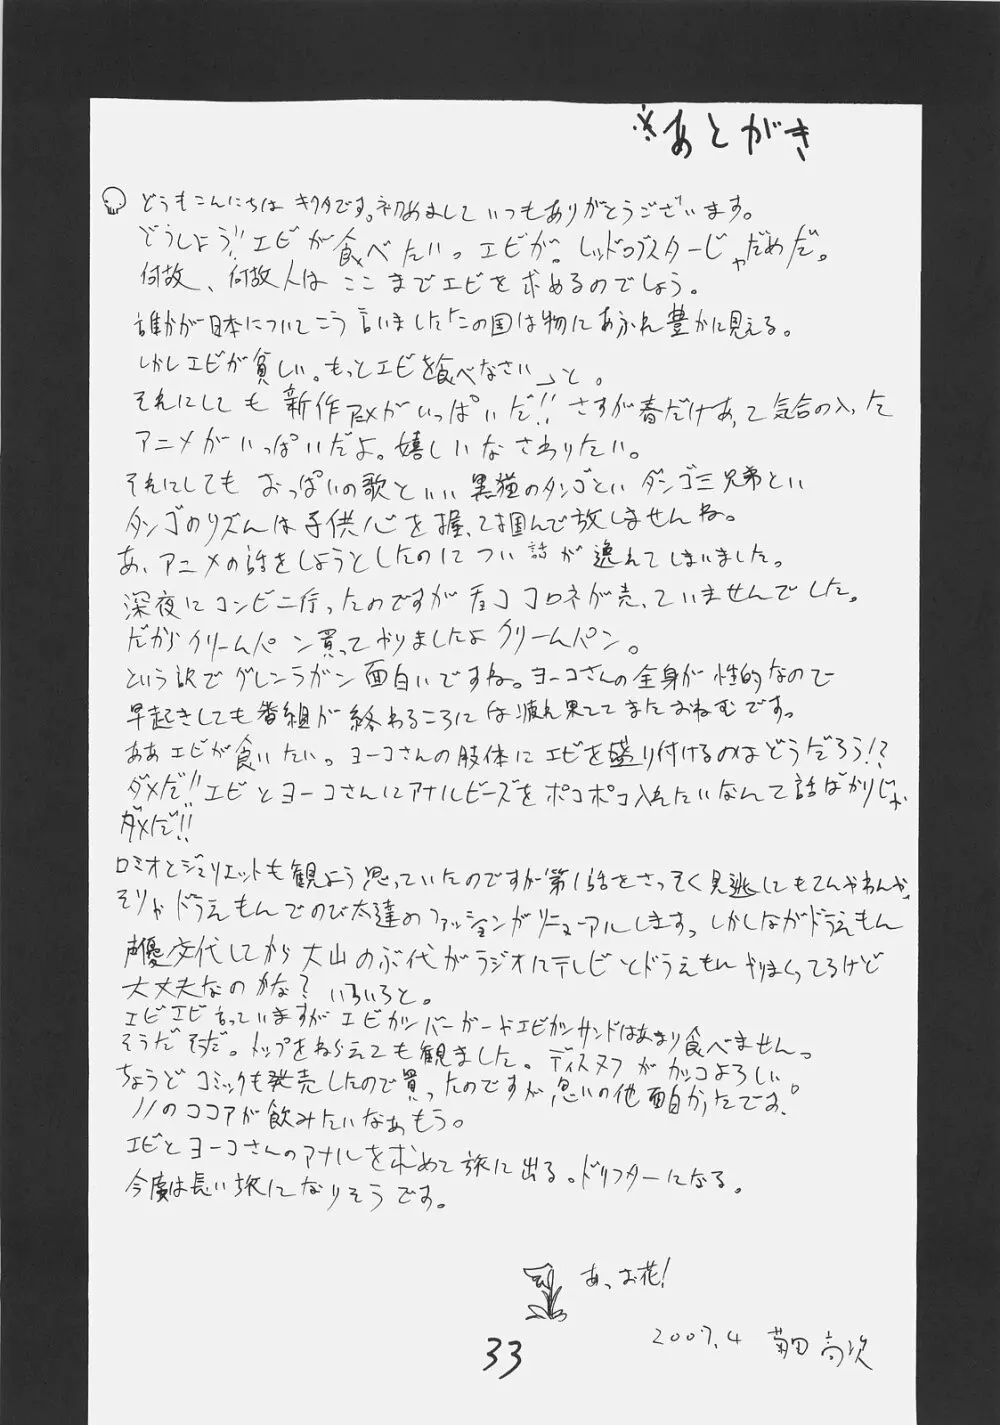 ※あとがき
どうもこんにちは キクタです。初めまして いつもありがとうございます。
どうしよう!! エビが食べたいっ エビが。レッドロブスターじゃだめだ。
何故、何故人は ここまでエビを求めるのでしょう。
誰かが日本についてこう言いました「この国は物にあふれ豊かに見える。
しかしエビが貧しい。もっとエビを食べなさい」と。
それにしても 新作アニメがいっぱいだ!! さすが春だけあって気合の入った
アニメがいっぱいだよ。嬉しいな さわりたい。
それにしても おっぱいの歌といい 黒猫のタンゴといい ダンゴ三兄弟といい
タンゴのリズムは子供心を握って掴んで放しませんね。
あ、アニメの話をしようとしたのについ話が逸れてしまいました。
深夜にコンビニ行ったのですがチョココロネが売っていませんでした。
だからクリームパン買ってやりましたよクリームパン。
という訳でグレンラガン面白いですね。ヨーコさんの全身が性的なので
早起きしても番組が終わるころには疲れ果ててまたおねむです。
ああエビが食いたい。ヨーコさんの肢体にエビを盛り付けるのはどうだろう!?
ダメだ!! エビとヨーコさんにアナルビーズをポコポコ入れたいなんて話ばかりじゃ
ダメだ!!
ロミオとジュリエットも観よう思っていたのですが第1話をさっそく見逃してもてんやわんや、
そりゃドラえもんでのび太達のファッションがリニューアルしますっ しかしながらドラえもん
声優交代してから 大山のぶ代がラジオにテレビとドラえもんやりまくってるけど
大丈夫なのかな? いろいろと。
エビエビ言っていますが エビカツバーガーやエビカツサンドはあまり食べませんっ
そうだそうだ。トップをねらえても観ました。ディスヌフがカッコよろしい
ちょうどコミックも発売したので買ったのですが思いの他面白かったです。
ノノのココアが飲みたいなぁもう。
エビとヨーコさんのアナルを求めて旅に出る。ドリフターになる。
今度は長い旅になりそうです。
あっ お花!
2007.4 菊田高次
33